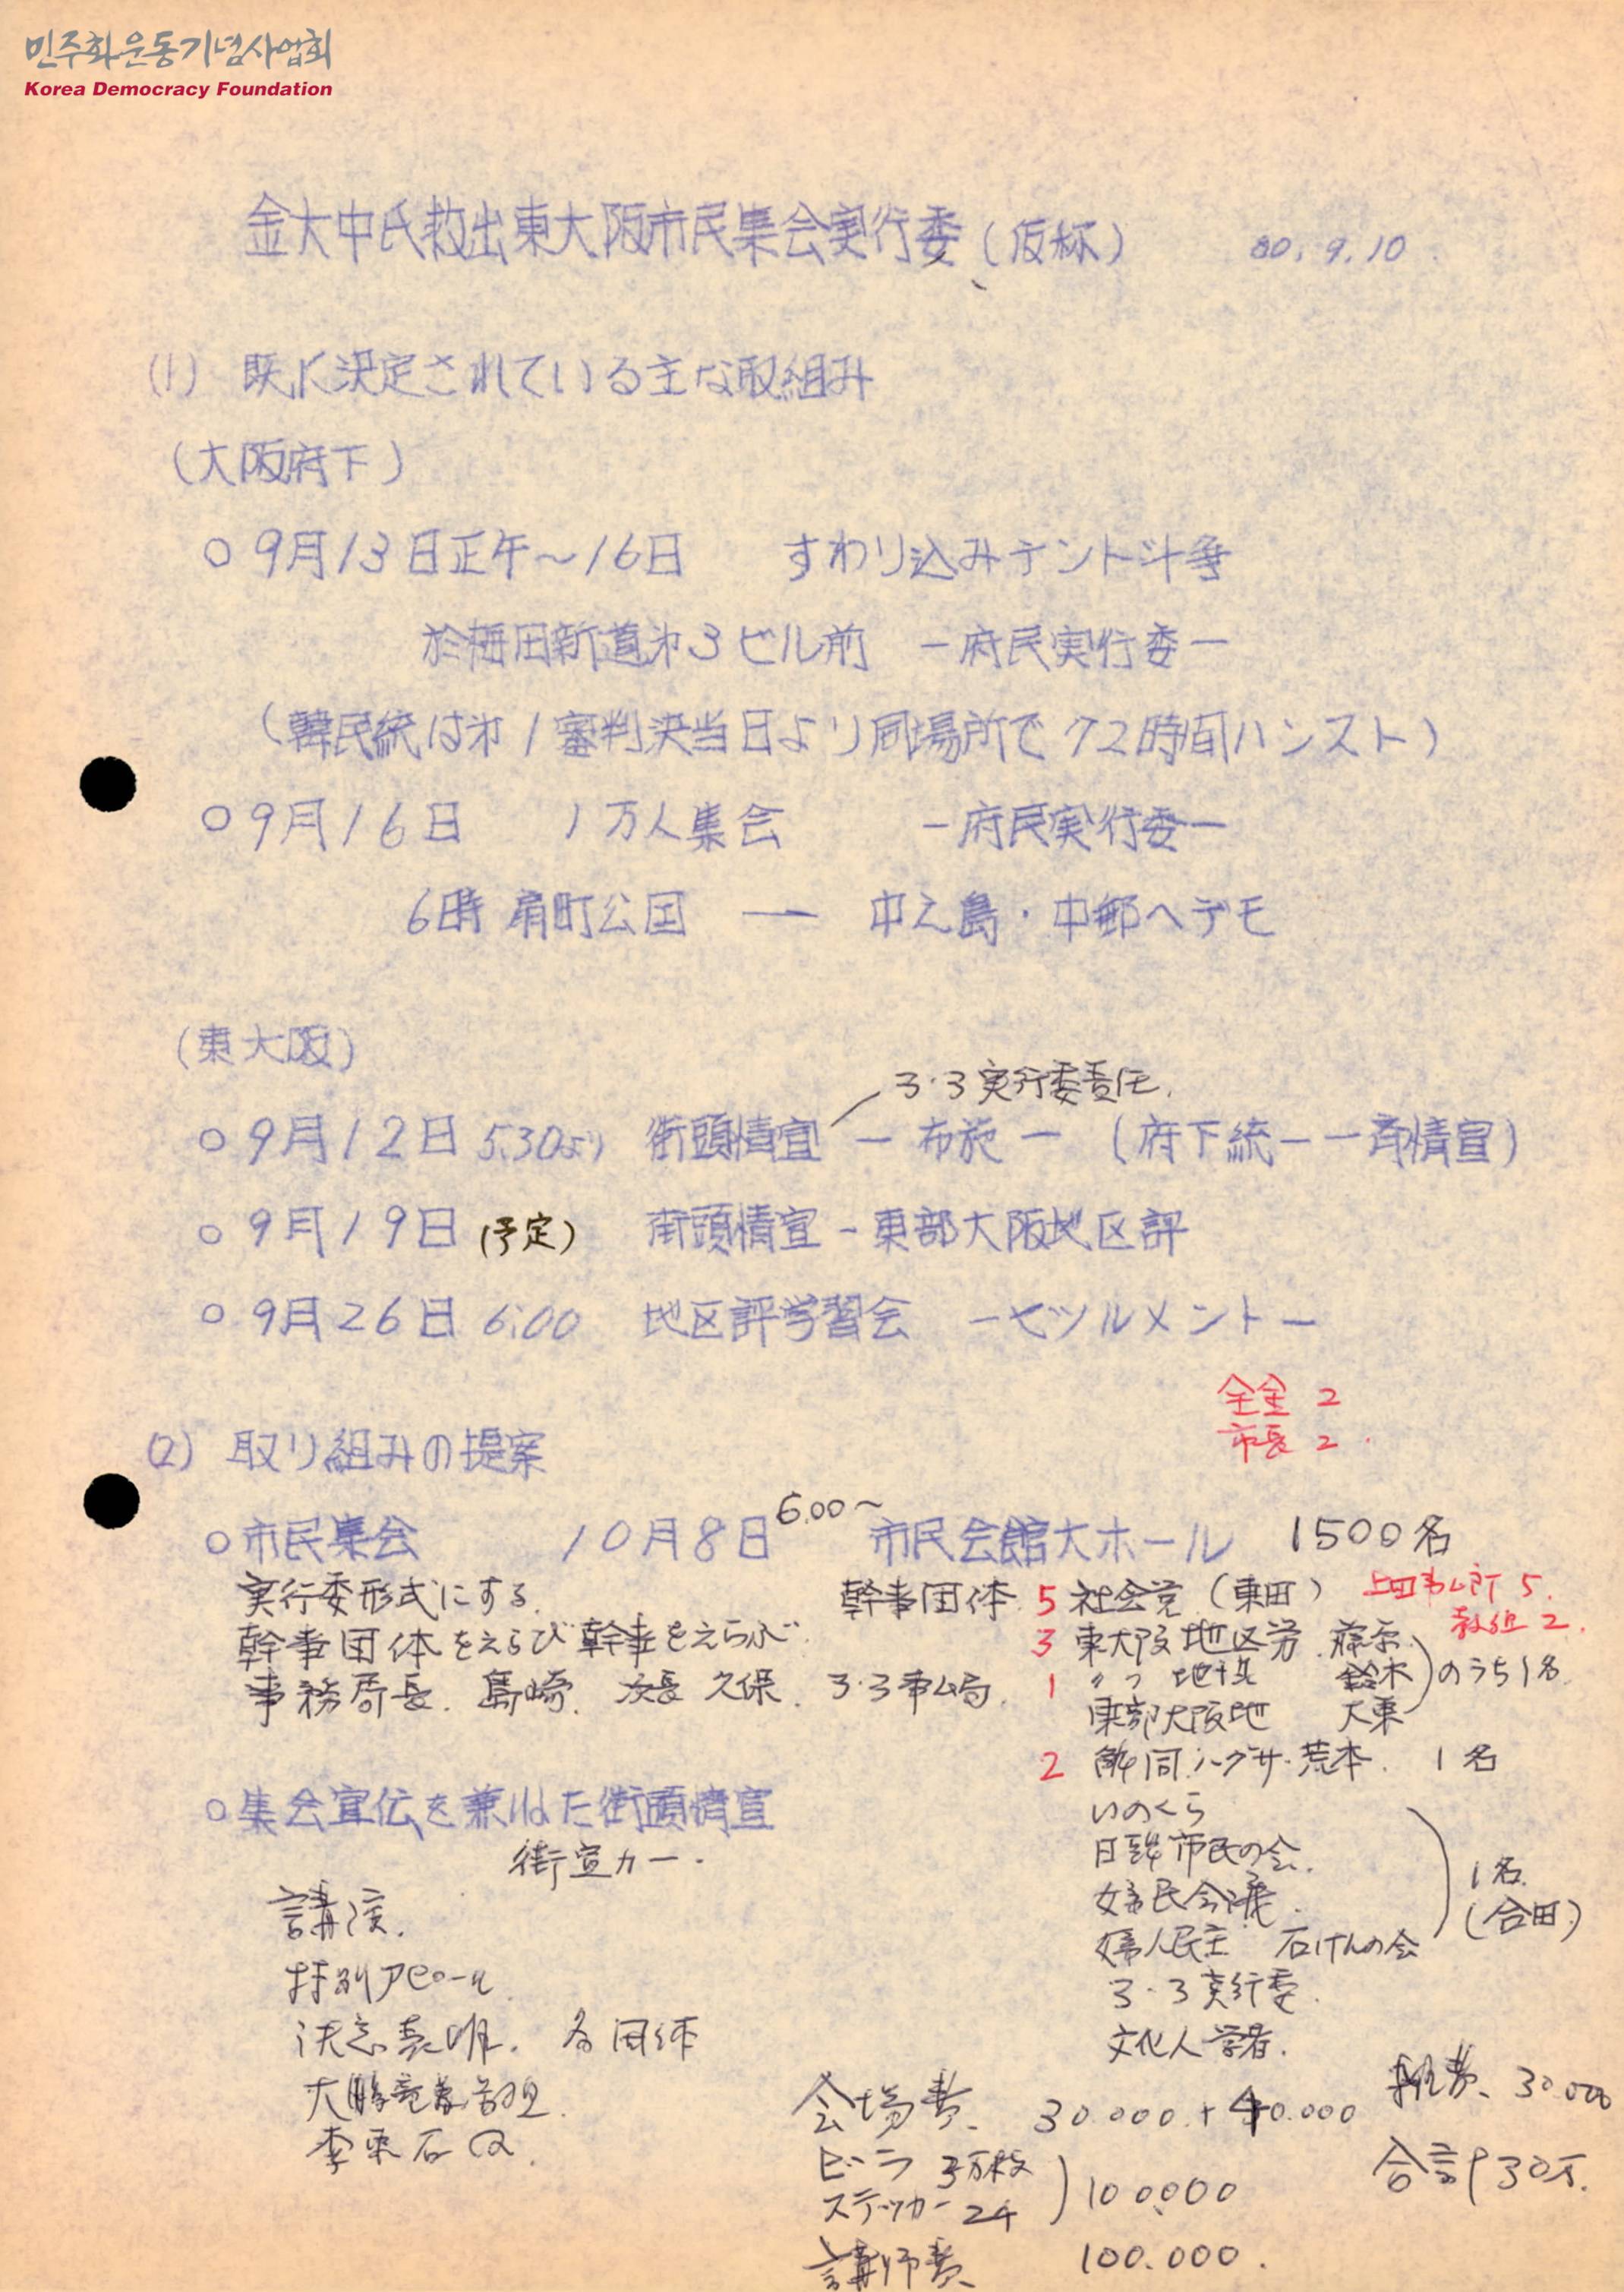 민주화운동기념사업회
Korea Democracy Foundation
金大中氏救出東大阪市民集会実行委(仮称) 80.9.10
(1) 既に決定されている主な取組み
(大阪府下)
○9月13日正午～16日 すわり込みテント斗争
於梅田新道第3ビル前 ー府民実行委ー
(韓民統は第1審判決当日より同場所で72時間ハンスト)
○9月16日 1万人集会 ー府民実行委ー
6時 扇町公園 ── 中之島・中郵へデモ
(東大阪)
3・3実行委責任.
○9月12日 5.30より 街頭情宣 ー布施ー (府下統一一斉情宣)
○9月19日(予定) 街頭情宣ー東部大阪地区評
○9月26日 6:00 地区評学習会 ーセツルメントー
全金 2
市長 2.
(2) 取り組みの提案
○市民集会 10月8日 6.00～ 市民会館大ホール 1500名
実行委形式にする. 幹事団体 5 社会党(東田) 上田 5.
幹事団体をえらび幹事をえらぶ. 3 東大阪地区労 藤原 教組 2.
事務局長. 島崎. 次長 久保. 3・3事ム局. 1 〃 鈴木 のうち1名
東部大阪地 大東
2 解同. 荒本. 1名
いのくら
○集会宣伝を兼ねた街頭情宣
街宣カー.
日韓市民の会.
婦民会議.
婦人民主 石けんの会
1名.
(合田)
3・3実行委.
文化人 学者.
講演.
特別アピール
決意表明. 各団体
李
会場費 30.000.+40.000
費 30.000
ビラ 3万枚
ステッカー 2千
100.000
合計 30万.
講師費 100.000.